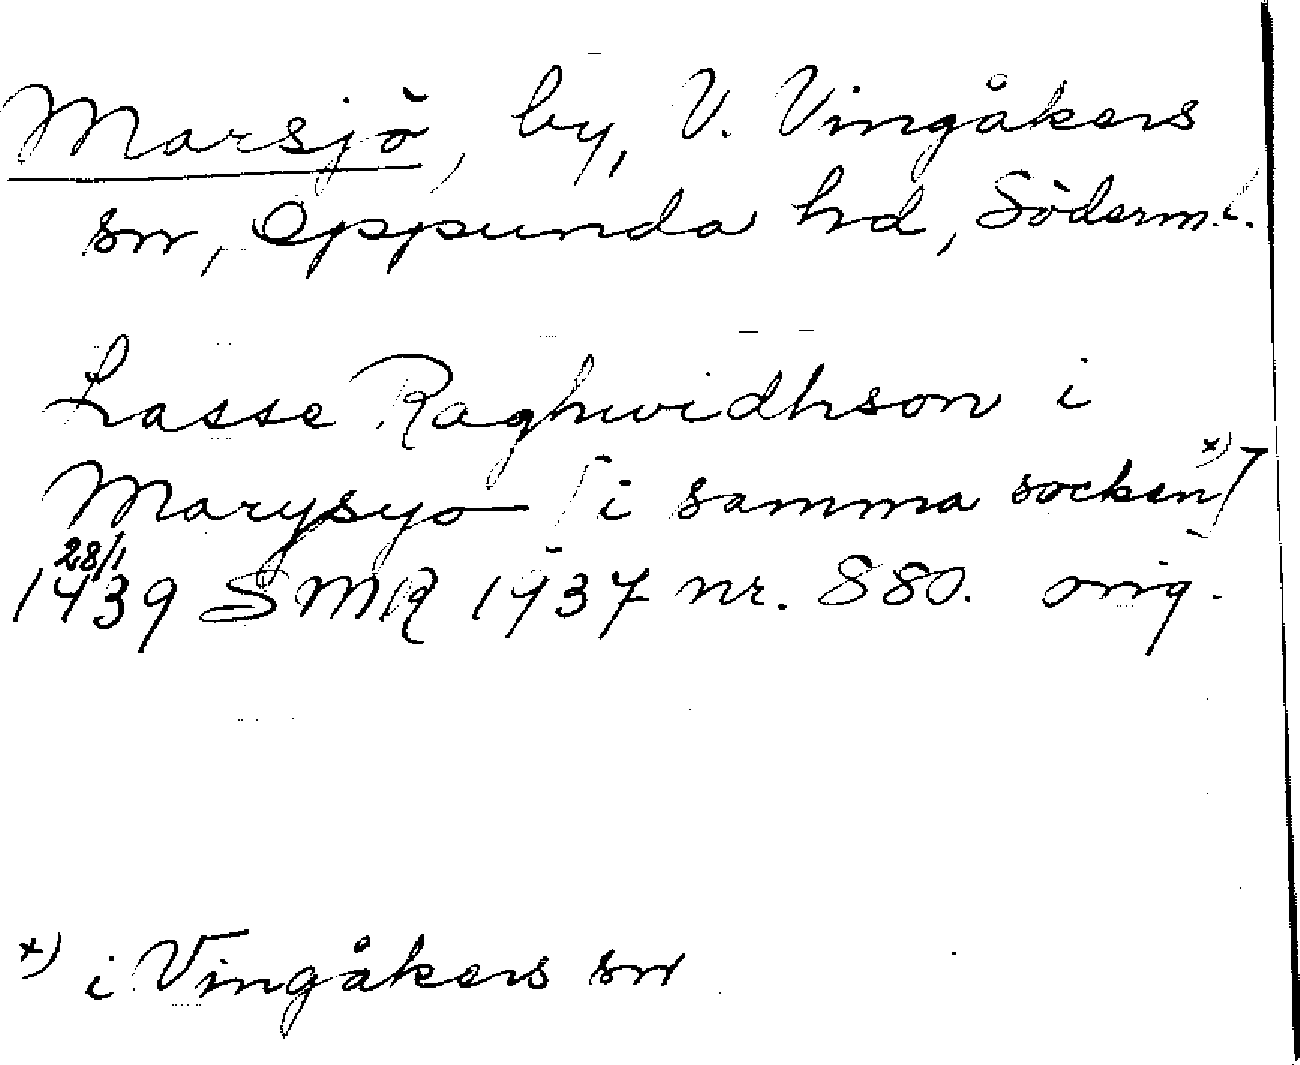 Marsjö, by, V. Vingåkers
sn, Oppunda hd, Söderml.
Lasse Raghwidhson i
Marysyo [i samma socken *)]
28/1
1439 SMR 1937 nr. 880. orig.
*) i Vingåkers sn